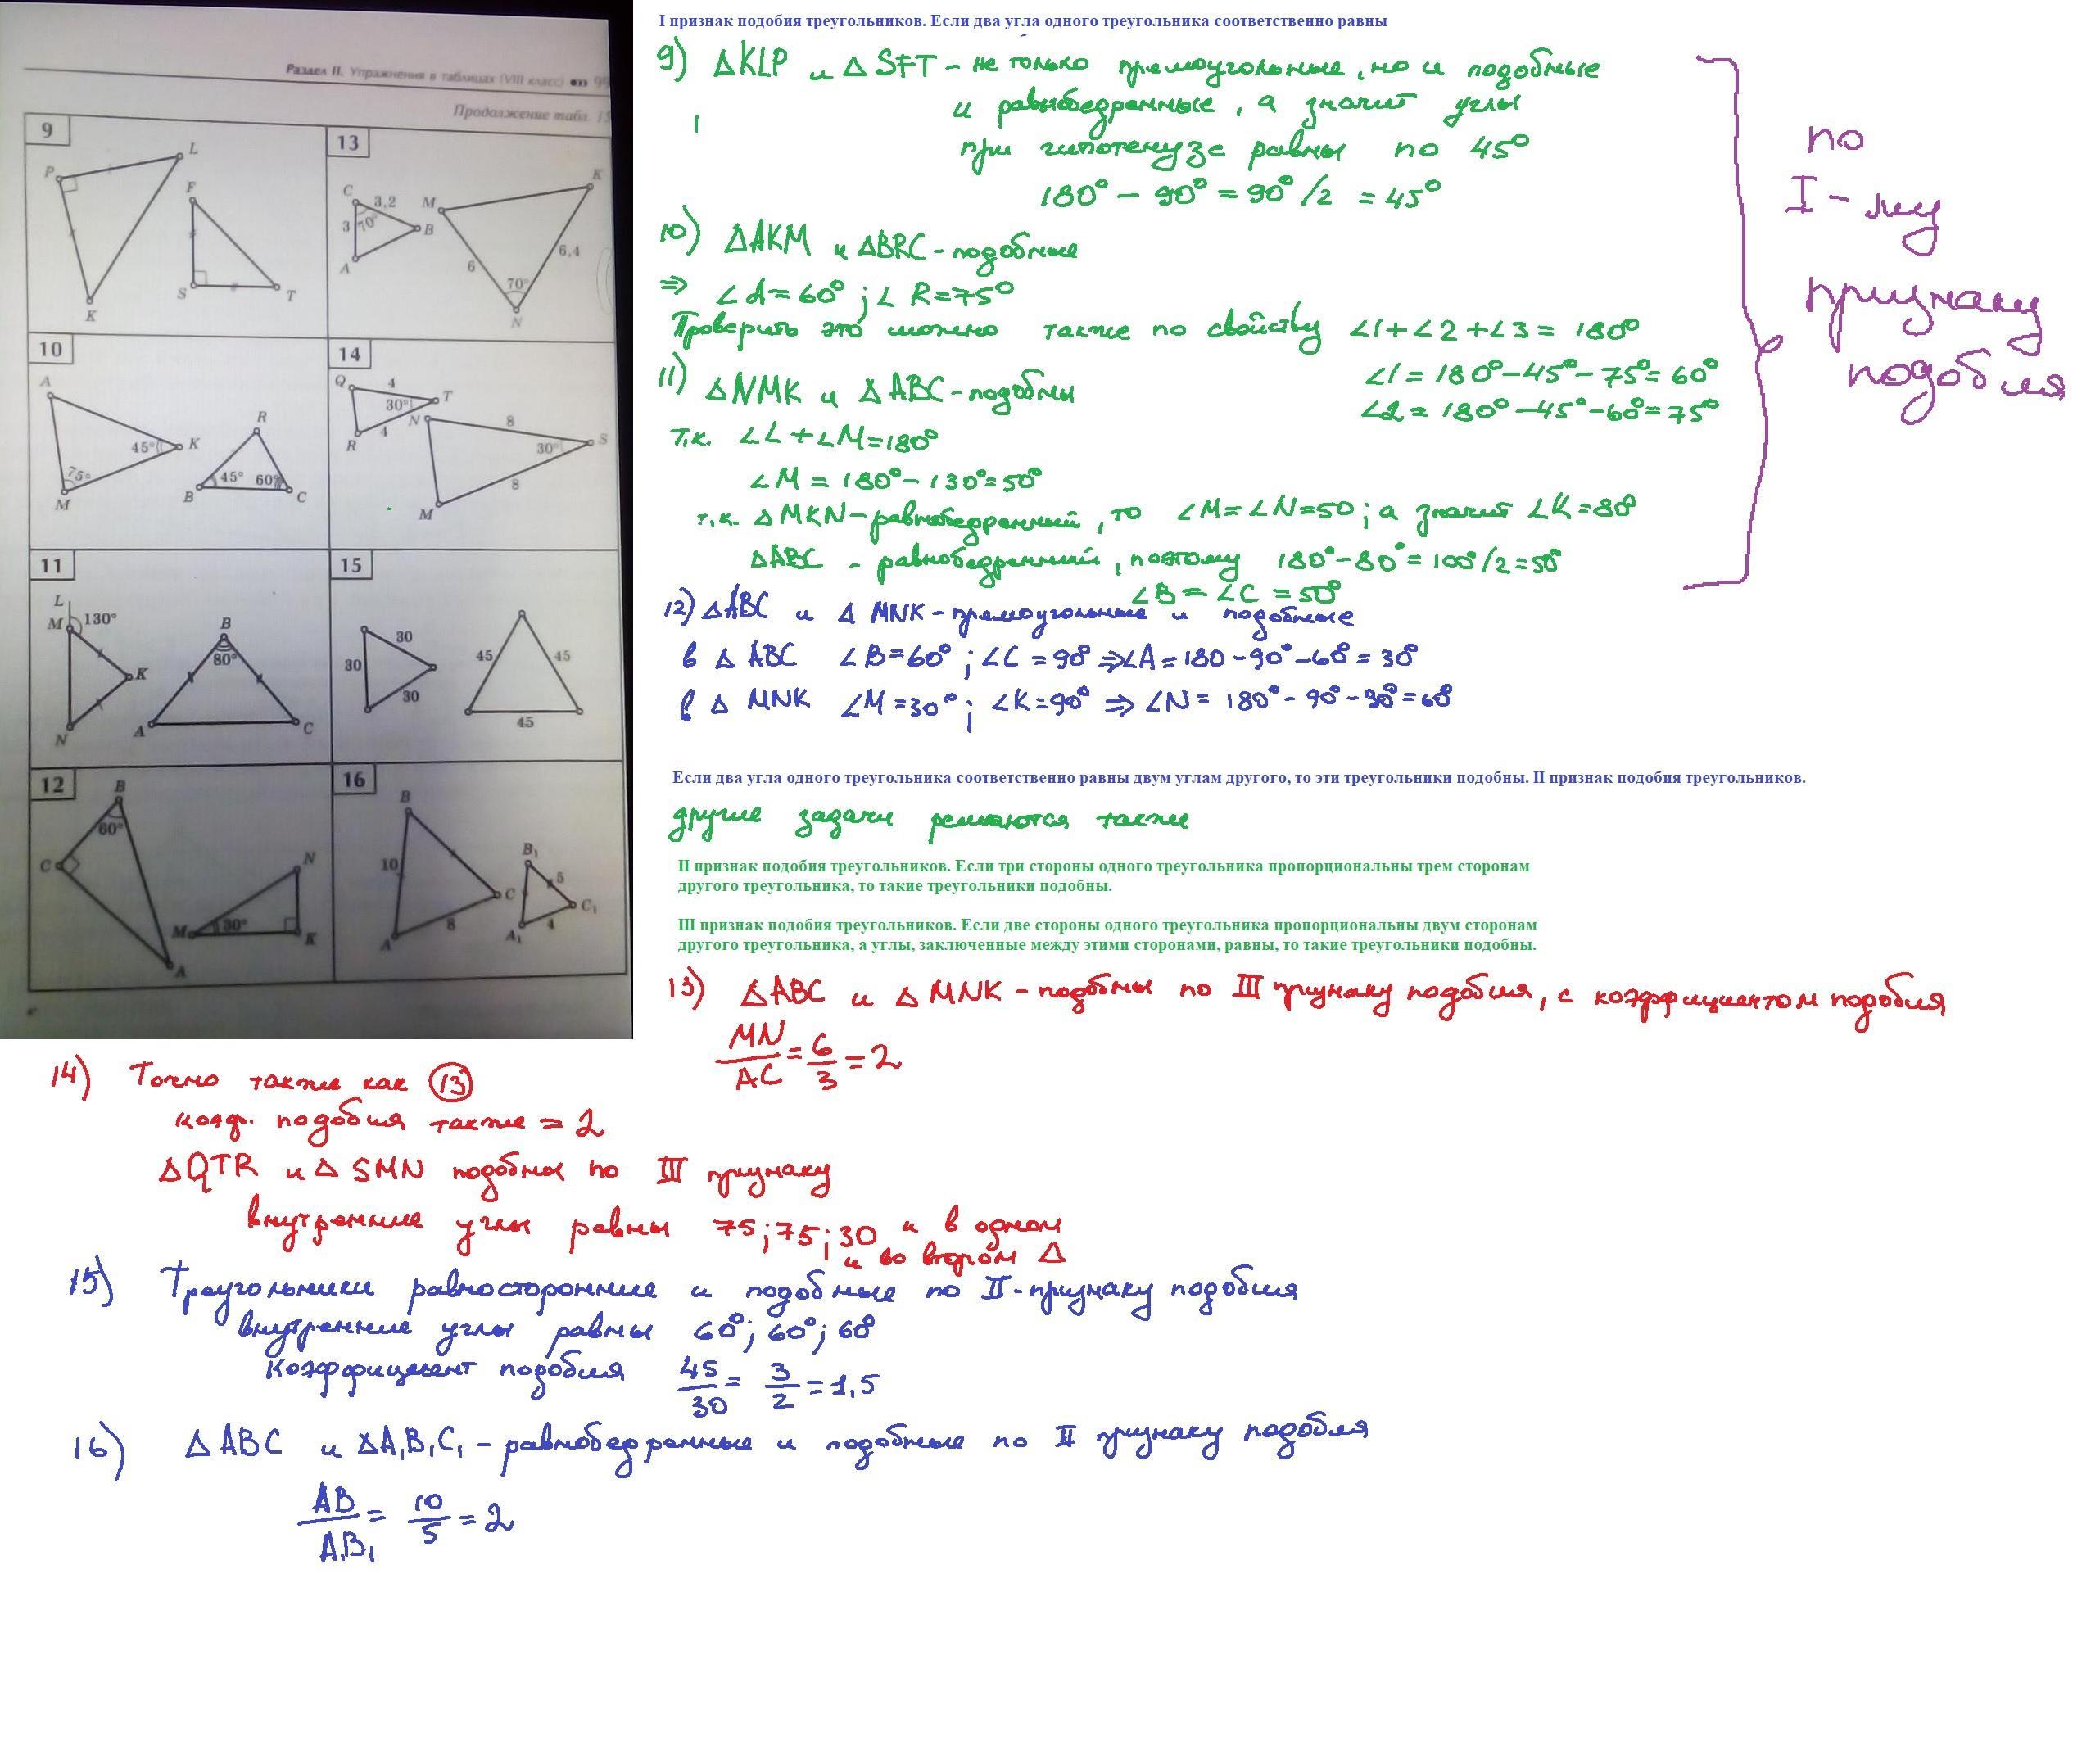 Раздел II. Упражнения в таблицах (VIII класс) 99
Продолжение табл. 15
9
P
L
F
S
T
K
13
C
3,2
M
K
3
70°
B
A
6
6,4
70°
N
10
A
45°
K
R
75°
M
B
45°
60°
C
14
Q
4
T
30°
N
8
S
R
4
30°
8
M
11
L
M
130°
B
K
80°
N
A
C
15
30
30
30
45
45
45
12
B
60°
C
N
M
30°
K
A
16
B
10
B₁
5
C
C₁
A
8
A₁
4
I признак подобия треугольников. Если два угла одного треугольника соответственно равны
9) ΔKLP и Δ SFT - не только прямоугольные, но и подобные
и равнобедренные, а значит углы
при гипотенузе равны по 45°
180° - 90° = 90°/2 = 45°
10) ΔAKM и ΔBRC - подобные
⇒ ∠A = 60°; ∠R = 75°
Проверить это можно также по свойству ∠1+∠2+∠3 = 180°
∠1 = 180°-45°-75° = 60°
∠2 = 180°-45°-60° = 75°
11) ΔNMK и ΔABC - подобны
т.к. ∠L + ∠M = 180°
∠M = 180° - 130° = 50°
т.к. Δ MKN - равнобедренный, то ∠M = ∠N = 50; а значит ∠K = 80°
ΔABC - равнобедренный, поэтому 180°-80° = 100°/2 = 50°
∠B = ∠C = 50°
по
I-му
признаку
подобия
12) ΔABC и Δ MNK - прямоугольные и подобные
в Δ ABC ∠B = 60°; ∠C = 90° ⇒ ∠A = 180-90°-60° = 30°
в Δ MNK ∠M = 30°; ∠K = 90° ⇒ ∠N = 180°-90°-30° = 60°
Если два угла одного треугольника соответственно равны двум углам другого, то эти треугольники подобны. II признак подобия треугольников.
другие задачи решаются также
II признак подобия треугольников. Если три стороны одного треугольника пропорциональны трем сторонам
другого треугольника, то такие треугольники подобны.
III признак подобия треугольников. Если две стороны одного треугольника пропорциональны двум сторонам
другого треугольника, а углы, заключенные между этими сторонами, равны, то такие треугольники подобны.
13) ΔABC и Δ MNK - подобны по III признаку подобия, с коэффициентом подобия
MN/AC = 6/3 = 2
14) Точно также как 13
коэф. подобия также = 2
ΔQTR и Δ SMN подобны по III признаку
внутренние углы равны 75; 75; 30 и в одном
и во втором Δ
15) Треугольники равносторонние и подобные по II-признаку подобия
внутренние углы равны 60°; 60°; 60°
Коэффициент подобия 45/30 = 3/2 = 1,5
16) Δ ABC и ΔA₁B₁C₁ - равнобедренные и подобные по II признаку подобия
AB/A₁B₁ = 10/5 = 2